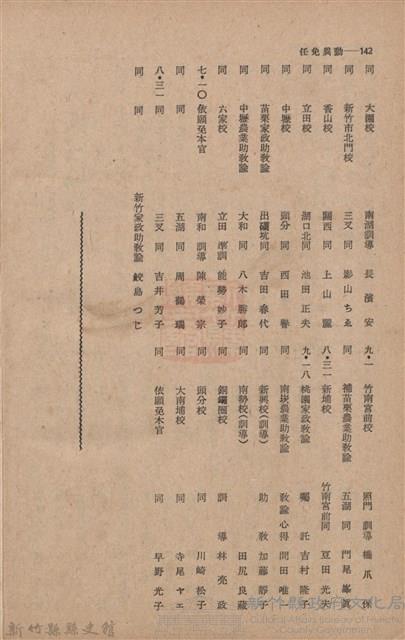 任免異動──142
同 大園校 南湖訓導 長濱安 九・一 竹南宮前校 照門訓導 橋爪保
同 新竹市北門校 三叉同 影山ちゑ 同 補苗栗農業助教諭 五湖同 門尾峯眞
同 香山校 關西同 上山麗 八・三一 新埔校 竹南宮前同 豆田光夫
同 立田校 湖口北同 池田正夫 九・一八 桃園家政教諭 囑託 吉村隆子
同 中壢校 頭分同 西田譽 同 南崁農業助教諭 教諭心得 間田唯
同 苗栗家政助教諭 出礦坑同 吉田春代 同 新興校(訓導) 助教 加藤靜
同 中壢農業助教諭 大和同 八木勝郎 同 南勢校(訓導) 田尻良藏
同 六家校 立田準訓 能勢妙子 同 銅鑼圈校 訓導 林亮政
七・一〇 依願免本官 南和訓導 陳榮宗 同 頭分校 同 川崎松子
同 同 五湖同 周鶴瑞 同 大南埔校 同 寺尾ヤエ
八・三一 同 三叉同 吉井芳子 同 依願免本官 同 早野光子
同 同 新竹家政助教諭 鮫島つじ
新竹縣縣史館
新竹縣政府文化局
Cultural Affairs Bureau of Hsinchu County Government